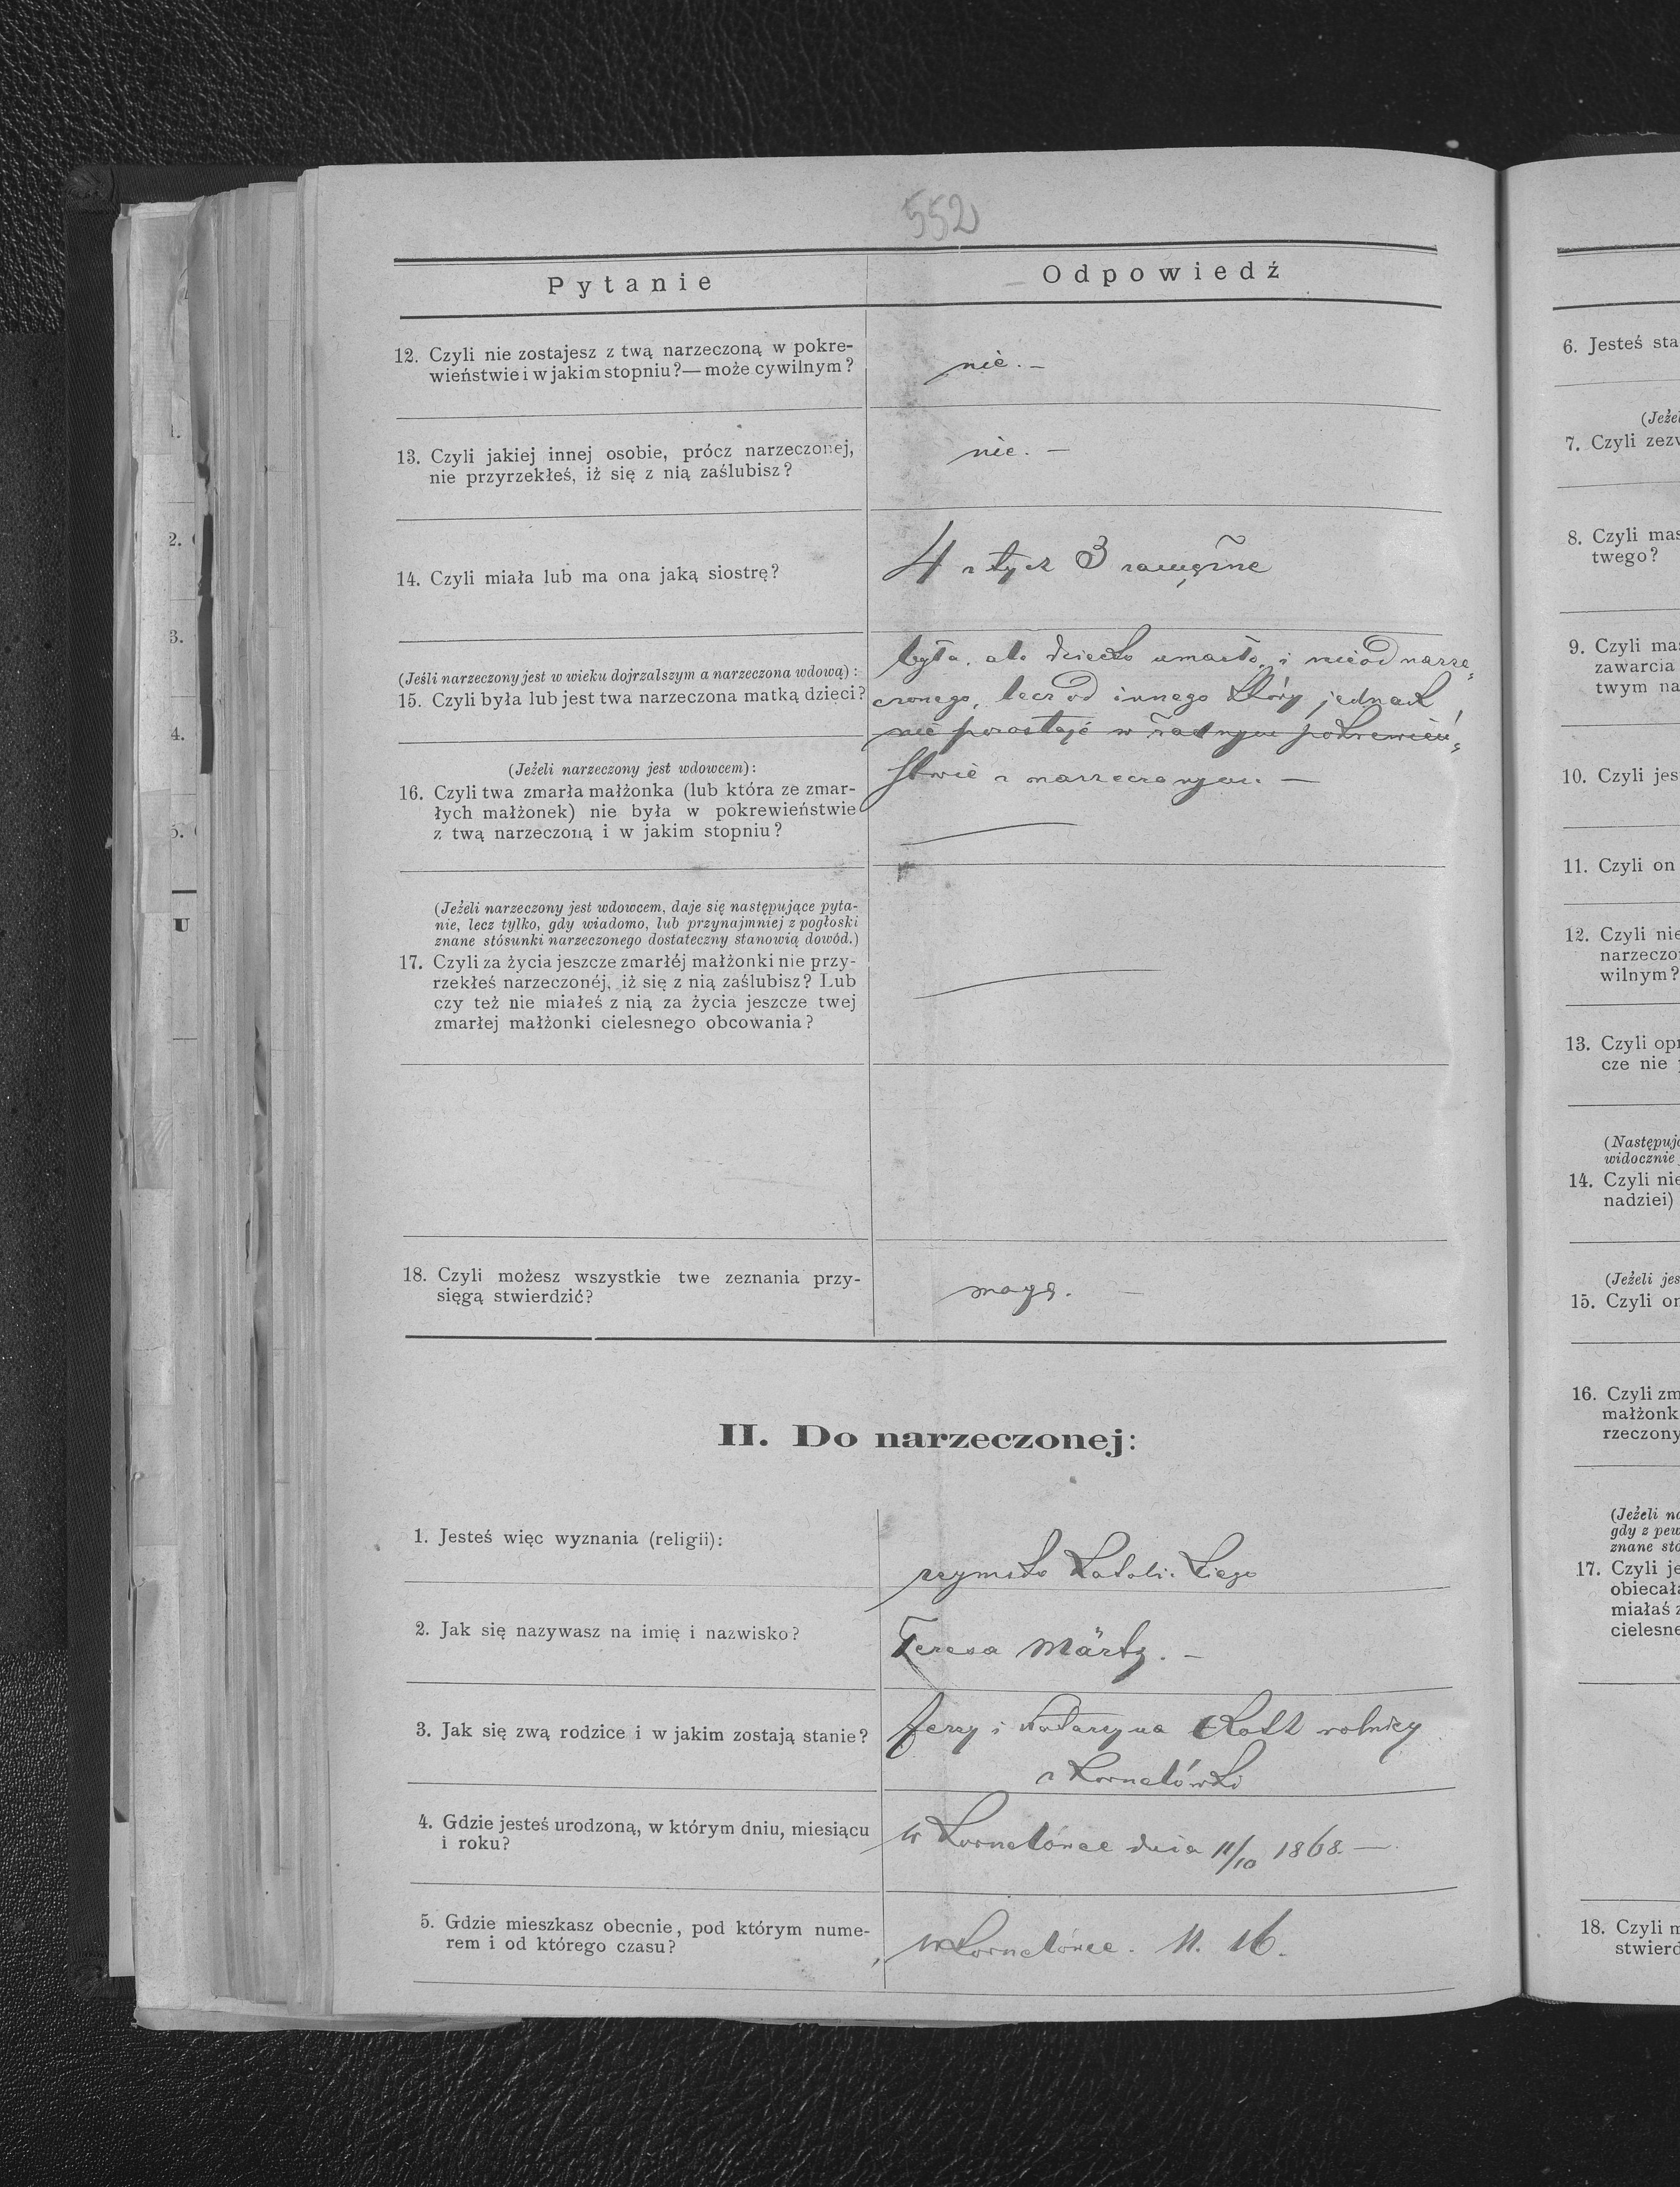 552
Pytanie
Odpowiedź
12. Czyli nie zostajesz z twą narzeczoną w pokre-
wieństwie i w jakim stopniu?—może cywilnym?
nie. –
13. Czyli jakiej innej osobie, prócz narzeczonej,
nie przyrzekłeś, iż się z nią zaślubisz?
nie. –
14. Czyli miała lub ma ona jaką siostrę?
4 z tych 3 zamężne
(Jeśli narzeczony jest w wieku dojrzalszym a narzeczona wdową):
15. Czyli była lub jest twa narzeczona matką dzieci?
była, ale dziecko umarło, i nie od narze„
czonego, lecz od innego który jednak
nie pozostaje w żadnym pokrewień„
stwie z narzeczonym. –
(Jeżeli narzeczony jest wdowcem):
16. Czyli twa zmarła małżonka (lub która ze zmar-
łych małżonek) nie była w pokrewieństwie
z twą narzeczoną i w jakim stopniu?
(Jeżeli narzeczony jest wdowcem, daje się następujące pyta-
nie, lecz tylko, gdy wiadomo, lub przynajmniej z pogłoski
znane stósunki narzeczonego dostateczny stanowią dowód.)
17. Czyli za życia jeszcze zmarłéj małżonki nie przy-
rzekłeś narzeczonéj, iż się z nią zaślubisz? Lub
czy też nie miałeś z nią za życia jeszcze twej
zmarłej małżonki cielesnego obcowania?
18. Czyli możesz wszystkie twe zeznania przy-
sięgą stwierdzić?
mogę. –
II. Do narzeczonej:
1. Jesteś więc wyznania (religii):
rzymsko katolickiego
2. Jak się nazywasz na imię i nazwisko?
Teresa Märtz. –
3. Jak się zwą rodzice i w jakim zostają stanie?
Jerzy i Katarzyna rolnicy
z Kornelówki
4. Gdzie jesteś urodzoną, w którym dniu, miesiącu
i roku?
w Kornelówce dnia 11/10 1868. –
5. Gdzie mieszkasz obecnie, pod którym nume-
rem i od którego czasu?
w Kornelówce. N. 16.
6. Jesteś sta
(Jeżel
7. Czyli zezw
8. Czyli mas
twego?
9. Czyli mas
zawarcia
twym na
10. Czyli jes
11. Czyli on
12. Czyli nie
narzeczo
wilnym?
13. Czyli opr
cze nie
(Następują
widocznie
14. Czyli nie
nadziei)
(Jeżeli jes
15. Czyli on
16. Czyli zm
małżonk
rzeczony
(Jeżeli na
gdy z pew
znane stó
17. Czyli je
obiecała
miałaś z
cielesne
18. Czyli m
stwierd
2.
3.
4.
5.
U